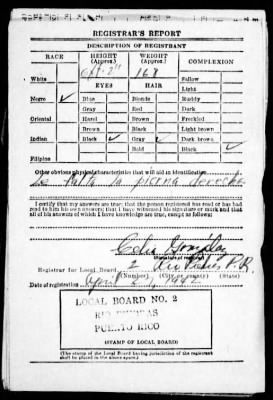 REGISTRAR'S REPORT
DESCRIPTION OF REGISTRANT
RACE HEIGHT (Approx.) WEIGHT (Approx.) COMPLEXION
168
White Sallow
EYES HAIR Light
Negro ✓ Blue Blonde Ruddy
Gray Red Dark
Oriental Hazel Brown Freckled
Brown Black Light brown
Indian Black ✓ Gray ✓ Dark brown
Bald Black ✓
Filipino
Other obvious physical characteristics that will aid in identification
le falta la pierna derecha
I certify that my answers are true; that the person registered has read or has had
read to him his own answers; that I have witnessed his signature or mark and that
all of his answers of which I have knowledge are true, except as follows:
(Signature of registrar)
Registrar for Local Board 2 Rio Piedras P.R.
(Number) (City or county) (State)
Date of registration April 1942
LOCAL BOARD NO. 2
RIO PIEDRAS
PUERTO RICO
(STAMP OF LOCAL BOARD)
(The stamp of the Local Board having jurisdiction of the registrant
shall be placed in the above space.)